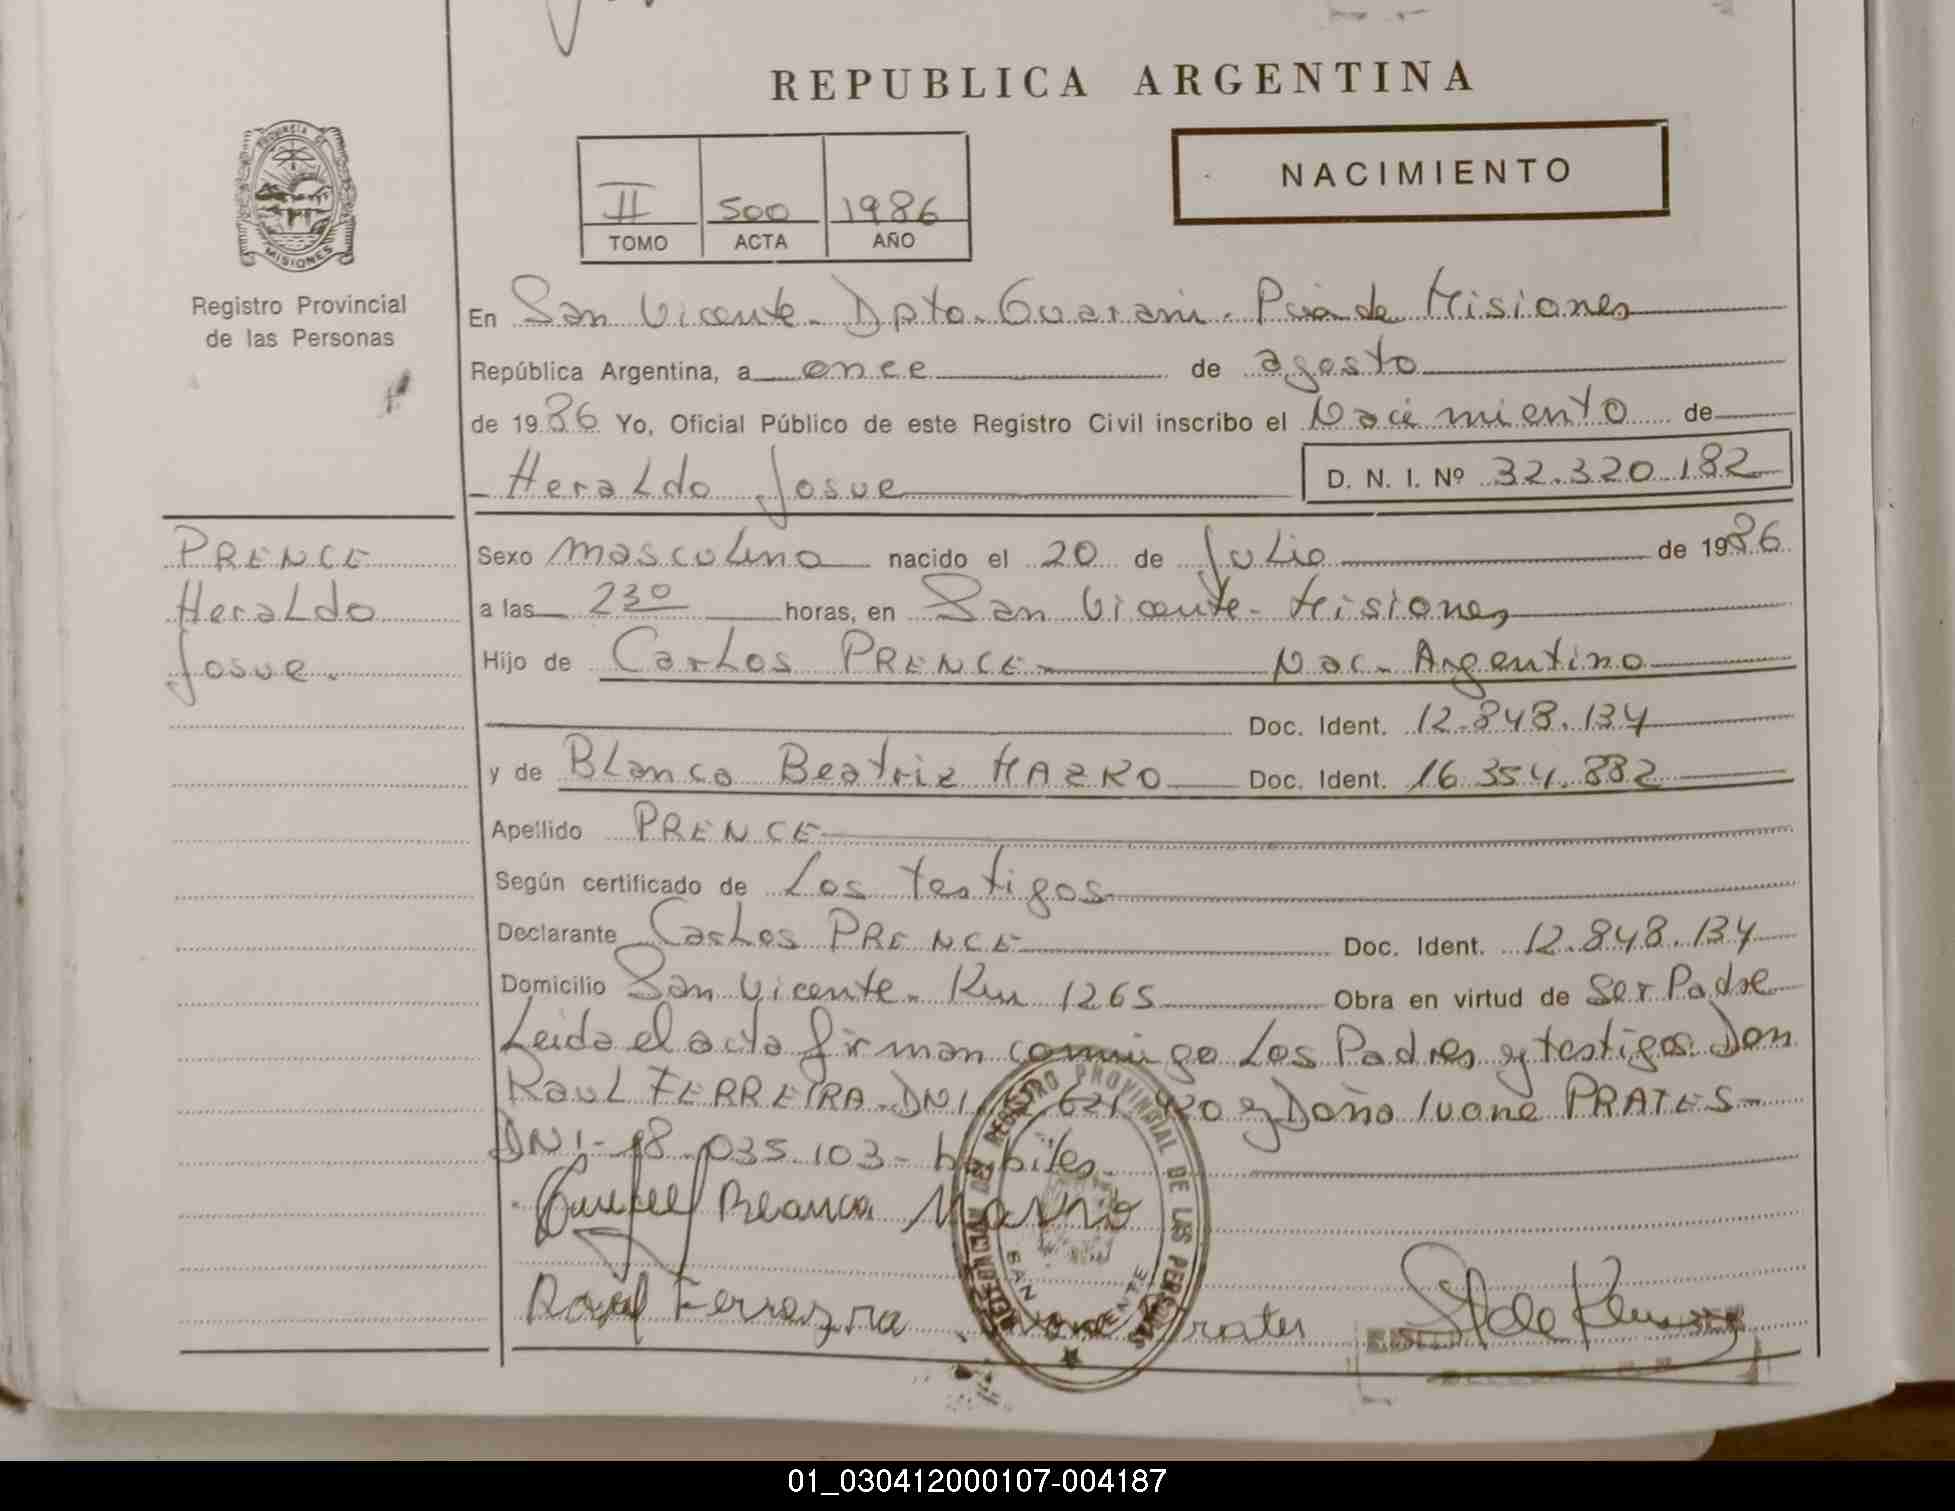 REPUBLICA ARGENTINA
NACIMIENTO
II 500 1986
TOMO ACTA AÑO
PROVINCIA DE MISIONES
Registro Provincial
de las Personas
En San Vicente - Dpto. Guarani - Pcia de Misiones
República Argentina, a once de agosto
de 1986 Yo, Oficial Público de este Registro Civil inscribo el Nacimiento de
Heraldo Josue D. N. I. Nº 32.320.182
PRENCE
Heraldo
Josue.
Sexo masculino nacido el 20 de Julio de 1986
a las 230 horas, en San Vicente - Misiones
Hijo de Carlos PRENCE - Nac - Argentino
Doc. Ident. 12.848.134
y de Blanca Beatriz Doc. Ident. 16.354.882
Apellido PRENCE
Según certificado de Los testigos
Declarante Carlos PRENCE Doc. Ident. 12.848.134
Domicilio San Vicente - Km 1265 Obra en virtud de Ser Padre
Leida el acta firman conmigo Los Padres y testigos Don
Raul FERREIRA - DNI y Doña Ivone PRATES -
DNI - 18.035.103 - habiles.
Blanca
Raul Ferreira Ivone Prates
REGISTRO PROVINCIAL DE LAS PERSONAS
SAN VICENTE
01_030412000107-004187